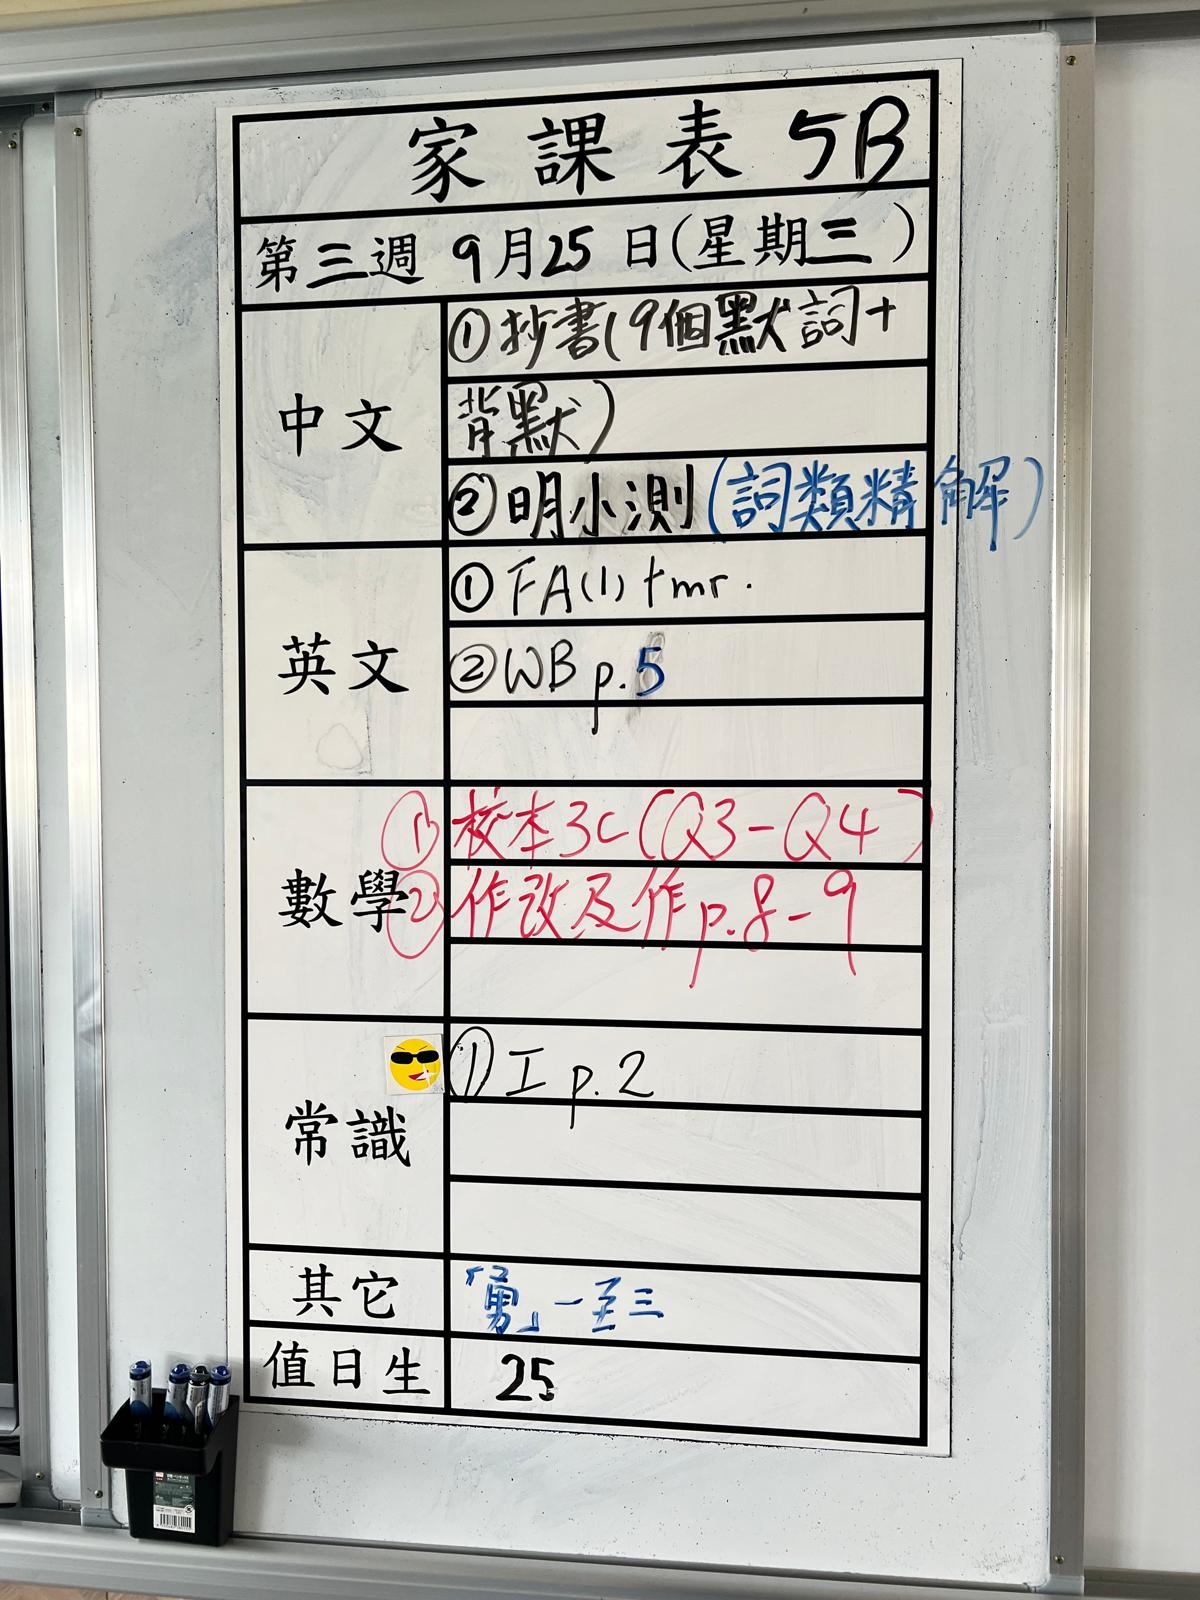 家課表 5B
第三週 9月25日(星期三)
中文
①抄書(9個默詞+
背默)
②明小測(詞類精解)
英文
①FA(1) tmr.
②WB p.5
數學
①校本3C(Q3-Q4)
②作改及作p.8-9
常識
①I p.2
其它
「勇」一至三
值日生
25